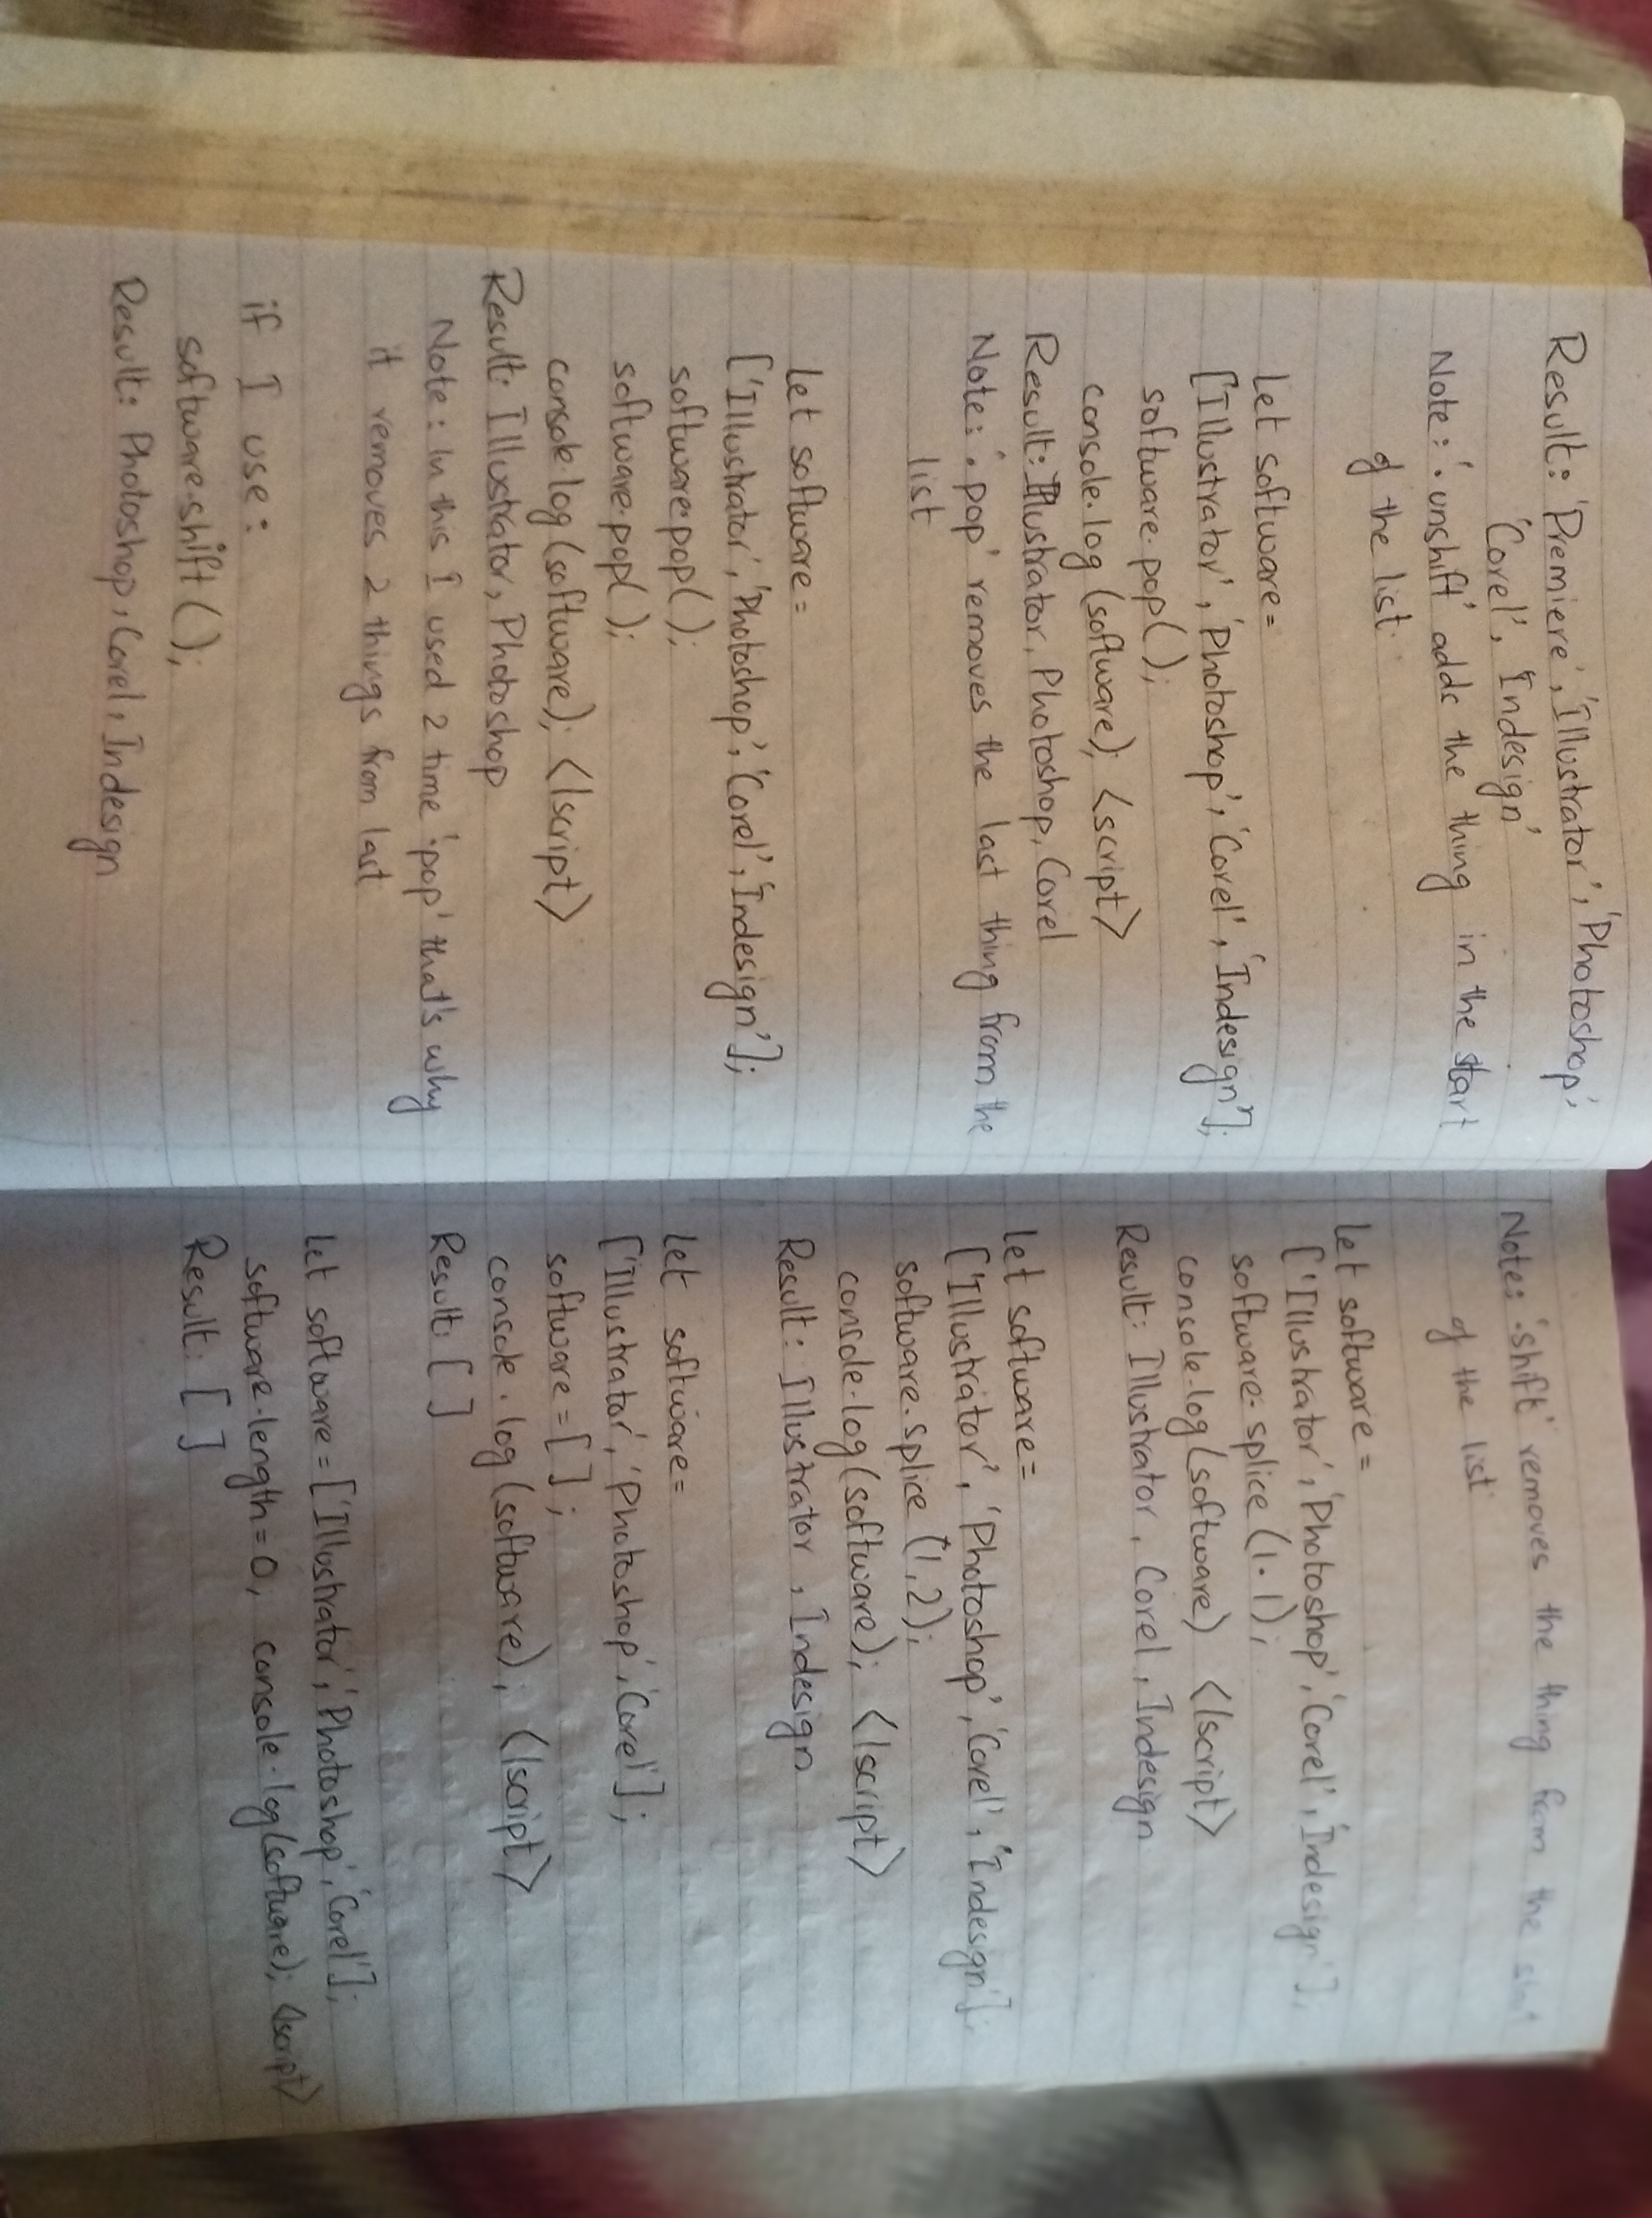 Result: 'Premiere', 'Illustrator', 'Photoshop',
'Corel', 'Indesign'
Note: '.unshift' adds the thing in the start
of the list.
Let software =
['Illustrator', 'Photoshop', 'Corel', 'Indesign'];
software.pop();
console.log(software); <script>
Result: Illustrator, Photoshop, Corel
Note: '.pop' removes the last thing from the
list
Let software =
['Illustrator', 'Photoshop', 'Corel', 'Indesign'];
software.pop();
software.pop();
console.log(software); </script>
Result: Illustrator, Photoshop
Note: In this I used 2 time '.pop' that's why
it removes 2 things from last
if I use:
software.shift();
Result: Photoshop, Corel, Indesign
Note: '.shift' removes the thing from the start
of the list
Let software =
['Illustrator', 'Photoshop', 'Corel', 'Indesign'];
software.splice(1.1);
console.log(software) </script>
Result: Illustrator, Corel, Indesign
Let software =
['Illustrator', 'Photoshop', 'Corel', 'Indesign'];
software.splice(1,2);
console.log(software); </script>
Result: Illustrator, Indesign
Let software =
['Illustrator', 'Photoshop', 'Corel'];
software = [ ];
console.log(software); </script>
Result: [ ]
Let software = ['Illustrator', 'Photoshop', 'Corel'];
software.length = 0, console.log(software); </script>
Result: [ ]